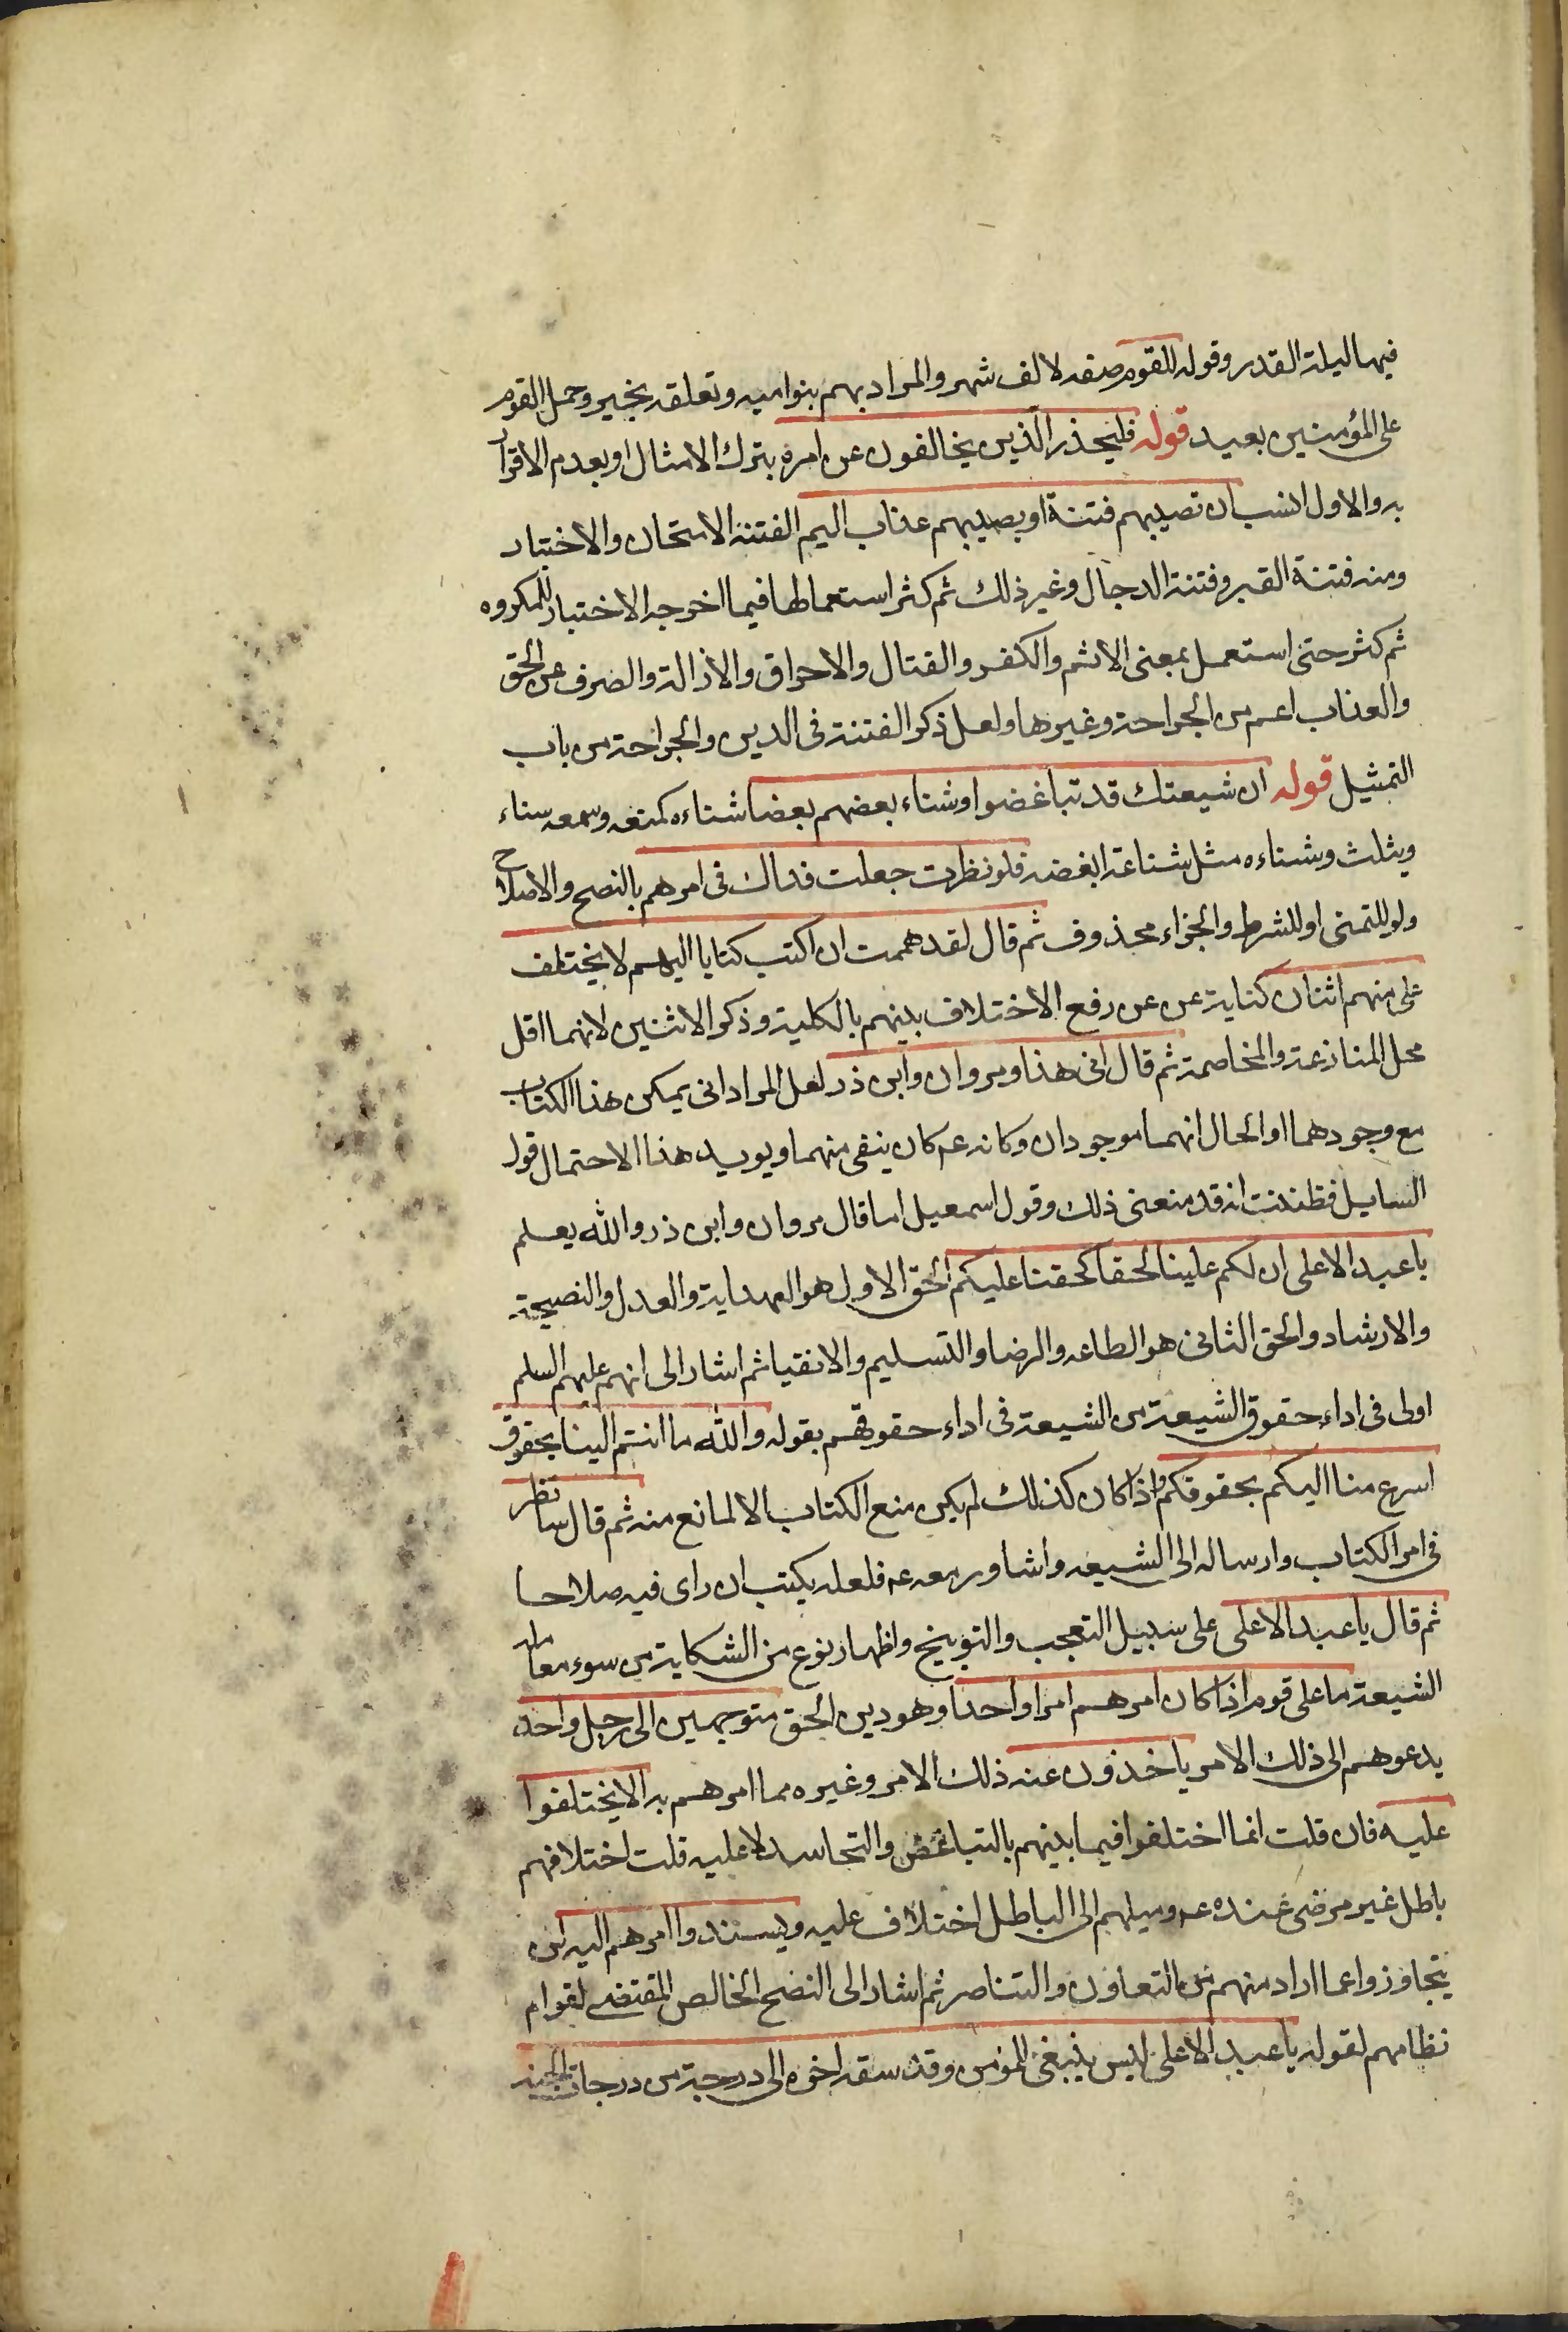 فيها ليلة القدر وقوله للقوم صفه لالف شهر والمراد بهم بنو اميه وتعلقه بخير وحمل القوم
على المؤمنين بعيد قوله فليحذر الذين يخالفون عن امره بترك الامثال او بعدم الاقرار
به والاول انسب ان تصيبهم فتنة او يصيبهم عذاب اليم الفتنة الامتحان والاختبار
ومنه فتنة القبر وفتنة الدجال وغير ذلك ثم كثر استعمالها فيما اخرجه الاختبار للمكروه
ثم كثر حتى استعمل بمعنى الاثم والكفر والقتال والاحراق والازالة والصرف عن الحق
والعذاب اعم من الجراحة وغيرها ولعل ذكر الفتنة في الدين والجراحة من باب
التمثيل قوله ان شيعتك قد تباغضوا وشناء بعضهم بعضا شناءه كمنعه وسمعه شناء
ويثلث وشناءه مثل شناعة ابغضه فلو نظرت جعلت فداك في امرهم بالنصح والاصلاح
ولو للتمنى او للشرط والجزاء محذوف ثم قال لقد هممت ان اكتب كتابا اليهم لا يختلف
على منهم اثنان كناية عن عن رفع الاختلاف بينهم بالكلية وذكر الاثنين لانهما اقل
محل المنازعة والمخاصمة ثم قال انى هذا ومروان وابن ذر لعل المراد انى يمكن هذا الكتاب
مع وجودهما او الحال انهما موجودان وكانه عم كان ينفى منهما ويويد هذا الاحتمال قول
السايل فظننت انه قد منعنى ذلك وقول اسمعيل اما قال مروان وابن ذر والله يعلم
يا عبد الاعلى ان لكم علينا لحقا كحقنا عليكم الحق الاول هو الهداية والعدل والنصيحة
والارشاد والحق الثانى هو الطاعه والرضا والتسليم والانقيا ثم اشار الى انهم عليهم السلم
اولى في اداء حقوق الشيعة من الشيعة فى اداء حقوقهم بقوله والله ما انتم الينا بحقوق
اسرع منا اليكم بحقوقكم واذا كان كذلك لم يكن منع الكتاب الا لمانع منه ثم قال سانظر
في امر الكتاب وارساله الى الشيعه واشاور معه عم فلعله يكتب ان راى فيه صلاحا
ثم قال يا عبد الاعلى على سبيل التعجب والتوبيخ واظهار نوع من الشكاية من سوء معامله
الشيعة ما على قوم اذا كان امرهم امرا واحدا وهو دين الحق متوجهين الى رجل واحد
يدعوهم الى ذلك الامر ياخذون عنه ذلك الامر وغيره مما امرهم به الا يختلفوا
عليه فان قلت انما اختلفوا فيما بينهم بالتباغض والتحاسد لا عليه قلت اختلافهم
باطل غير مرضى عنده عم وميلهم الى الباطل اختلاف عليه ويسندوا امرهم اليه لئن
يتجاوزوا عما اراد منهم من التعاون والتناصر ثم اشار الى النصح الخالص المقتضى لقوام
نظامهم لقوله يا عبد الاعلى ليس ينبغى للمؤمن وقد سبقه اخوه الى درجة من درجات الجنه